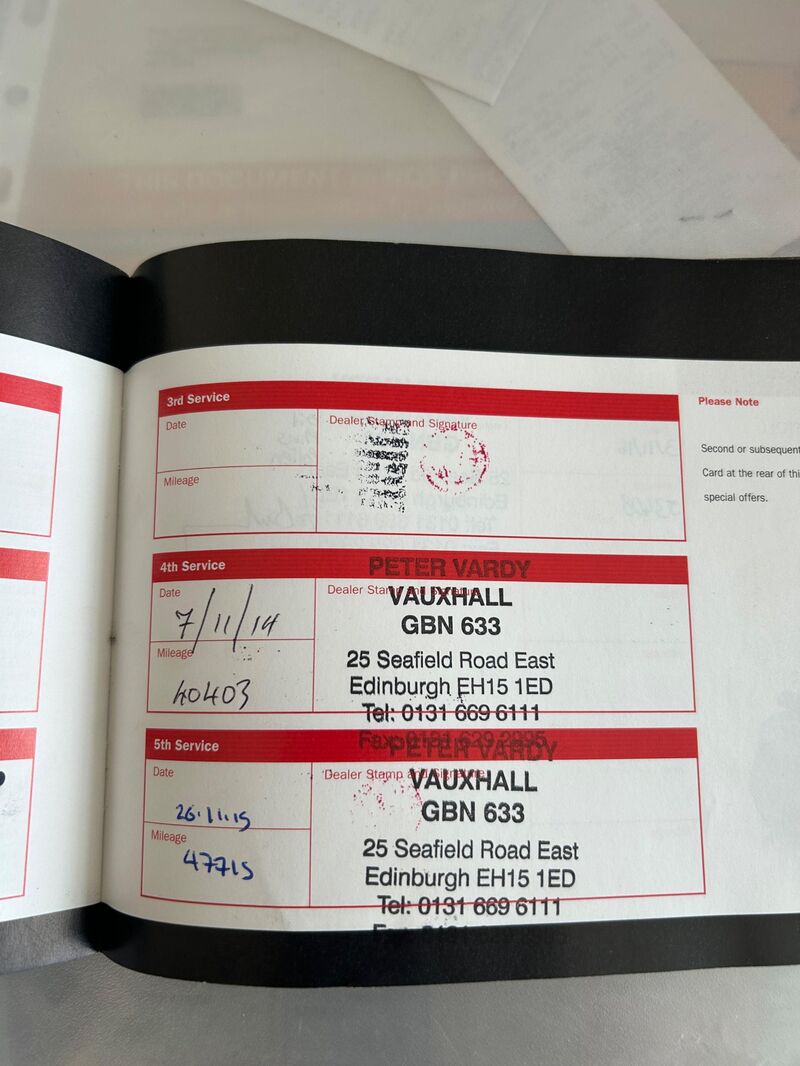 3rd Service
Date
Dealer Stamp and Signature
Mileage
Please Note
Second or subsequent
Card at the rear of thi
special offers.
4th Service
PETER VARDY
Date
Dealer Stamp and Signature
7/11/14
VAUXHALL
GBN 633
Mileage
40403
25 Seafield Road East
Edinburgh EH15 1ED
Tel: 0131 669 6111
5th Service
PETER VARDY
Date
Dealer Stamp and Signature
26.11.15
VAUXHALL
GBN 633
Mileage
47715
25 Seafield Road East
Edinburgh EH15 1ED
Tel: 0131 669 6111